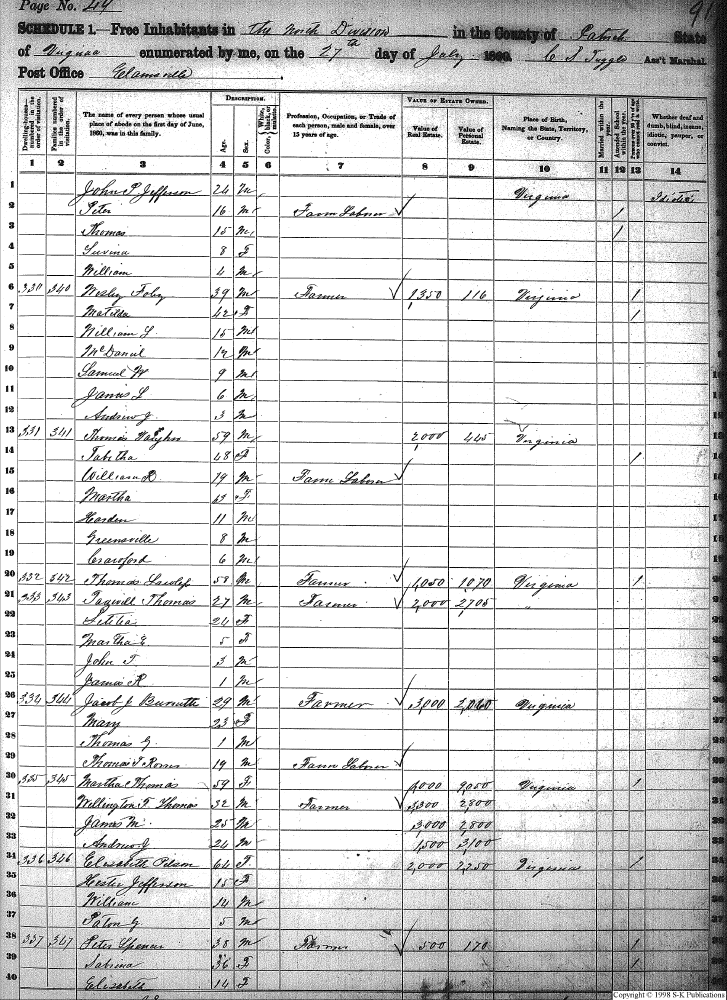 Page No. 44
91
SCHEDULE 1.—Free Inhabitants in the North Division in the County of Patrick State
of Virginia enumerated by me, on the 27th day of July 1860. Ass't Marshal.
Post Office Elamsville
Dwelling-houses—numbered in the order of visitation.
Families numbered in the order of visitation.
The name of every person whose usual place of abode on the first day of June, 1860, was in this family.
DESCRIPTION.
Age.
Sex.
Color, White, black, or mulatto.
Profession, Occupation, or Trade of each person, male and female, over 15 years of age.
VALUE OF ESTATE OWNED.
Value of Real Estate.
Value of Personal Estate.
Place of Birth, Naming the State, Territory, or Country.
Married within the year.
Attended School within the year.
Whether deaf and dumb, blind, insane, idiotic, pauper, or convict.
1 2 3 4 5 6 7 8 9 10 11 12 13 14
1 John P. Jefferson 24 M Virginia Idiotic
2 Peter 16 M Farm Laborer /
3 Thomas 15 M /
4 8 F
5 William 4 M
6 330 340 39 M Farmer 1350 116 Virginia 1
7 Matilda 42 F 1
8 William L. 15 M
9 McDaniel 12 M
10 Samuel W 9 M
11 James L 6 M
12 Andrew J. 3 M
13 331 341 Thomas Vaughn 59 M 2,000 445 Virginia
14 Tabitha 48 F 1
15 William R. 19 M Farm Laborer
16 Martha F
17 Harden 11 M
18 Greensville 8 M
19 Crawford 6 M
20 332 342 Thomas 58 M Farmer 1,050 1070 Virginia 1
21 333 343 Thomas 27 M Farmer 2,000 2,705 "
22 Letitia 24 F
23 Martha E. 5 F
24 John T. 3 M
25 James R 1 M
26 334 344 Jacob J 29 M Farmer 3,000 Virginia
27 Mary 23 F
28 Thomas G. 1 M
29 Thomas 19 M Farm Laborer
30 335 345 Martha Thomas 59 F 6,000 9,050 Virginia 1
31 Wellington T Thomas 32 M Farmer 3,300 2,800
32 James M. 25 M 3,000 2,800
33 Andrew J 24 M 1,500 3,100
34 336 346 Elizabeth 64 F 2,000 Virginia 1
35 Hester Jefferson 15 F
36 William 14 M
37 Paton G 5 M
38 337 347 Peter Spencer 38 M Farmer 500 170 1
39 Sabrina 36 F 1
40 Elizabeth 14 F
Copyright © 1998 S-K Publications